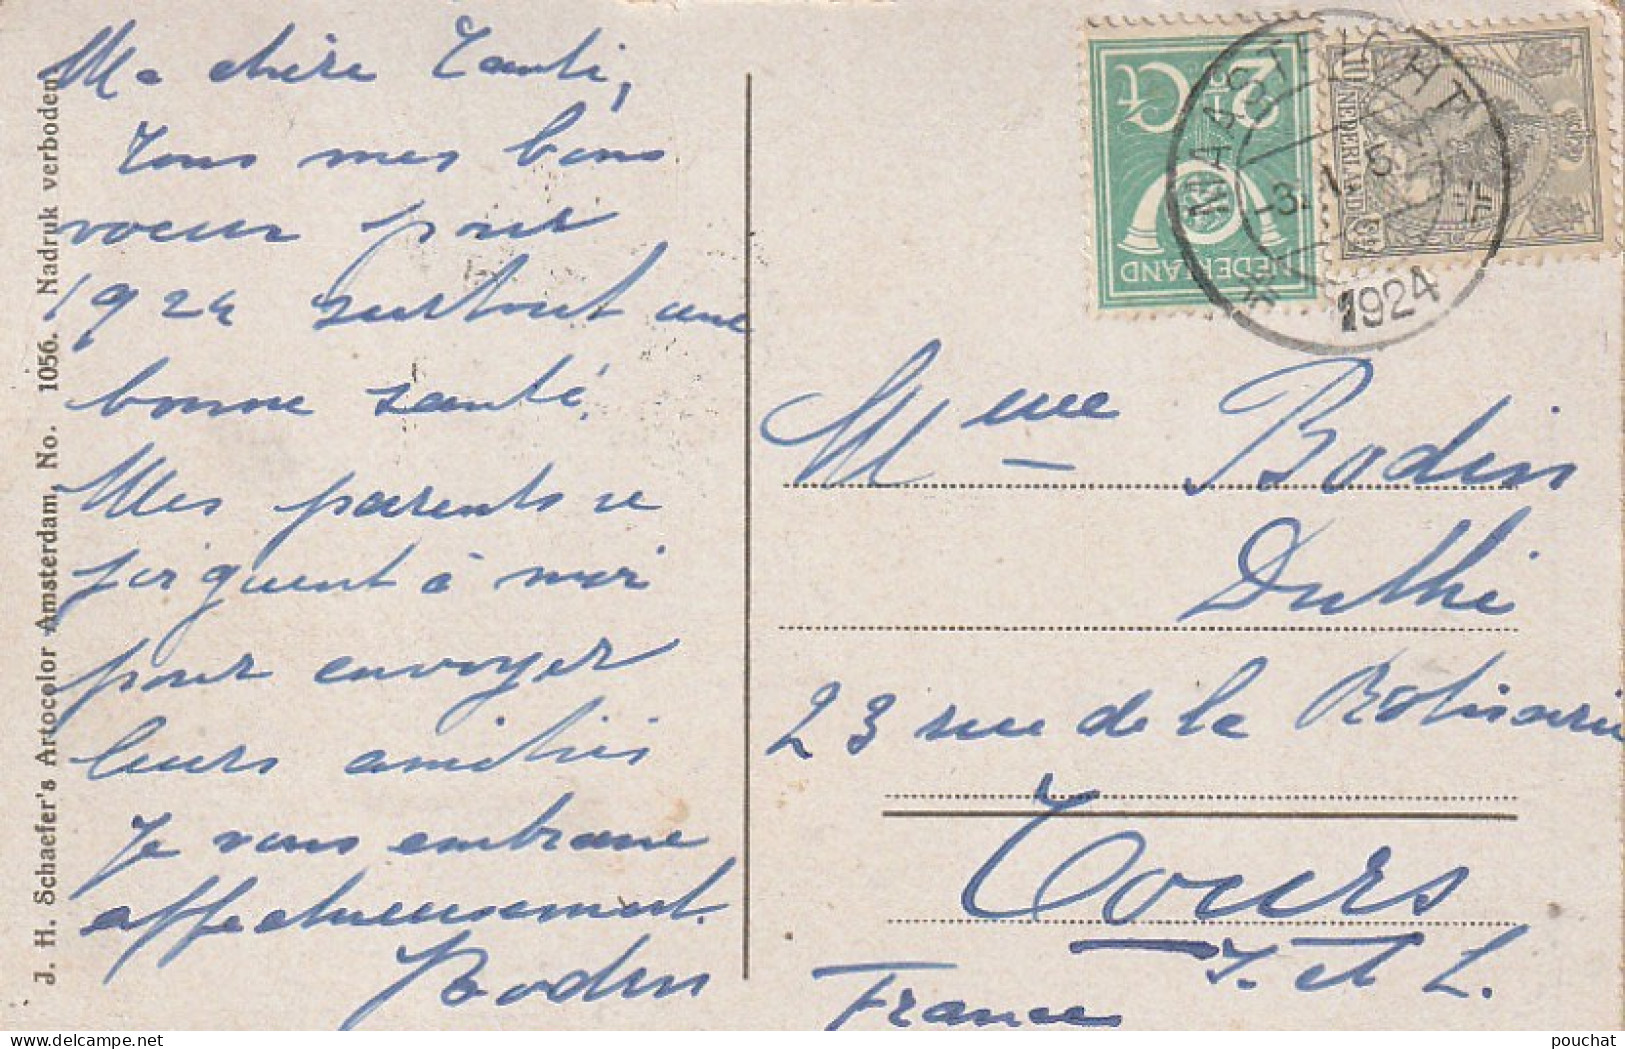 Ma chère Tanti,
Tous mes bons
voeux pour
1924 surtout une
bonne santé.
Mes parents se
joignent à moi
pour envoyer
leurs amitiés
Je vous embrasse
affectueusement.
Bodin
J. H. Schaefer's Artocolor Amsterdam, No. 1056. Nadruk verboden
2½ Ct
NEDERLAND
10 NEDERLAND
MAASTRICHT
1924
Mme Bodin
Duthé
23 rue de la Rotisserie
Tours
I. et L.
France
pouchat